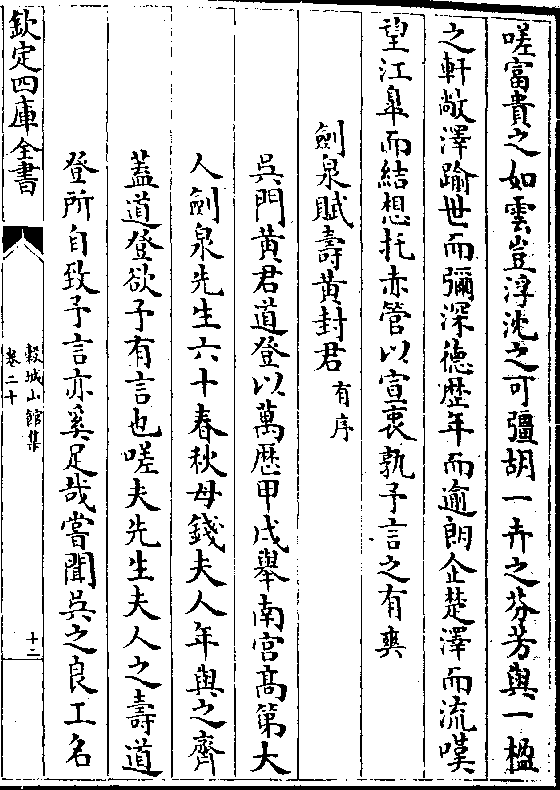 嗟富貴之如雲豈浮沈之可彊胡一卉之芬芳與一楹
之軒敞澤踰世而彌深德歴年而逾朗企楚澤而流嘆
望江臯而結想托赤管以宣衷孰予言之有爽
劍泉賦壽黄封君有序
吳門黄君道登以萬歴甲戌舉南宫髙第大
人劍泉先生六十春秋母錢夫人年與之齊
蓋道登欲予有言也嗟夫先生夫人之壽道
登所自致予言亦奚足哉嘗聞吳之良工名
欽定四庫全書
穀城山館集
卷二十
十二